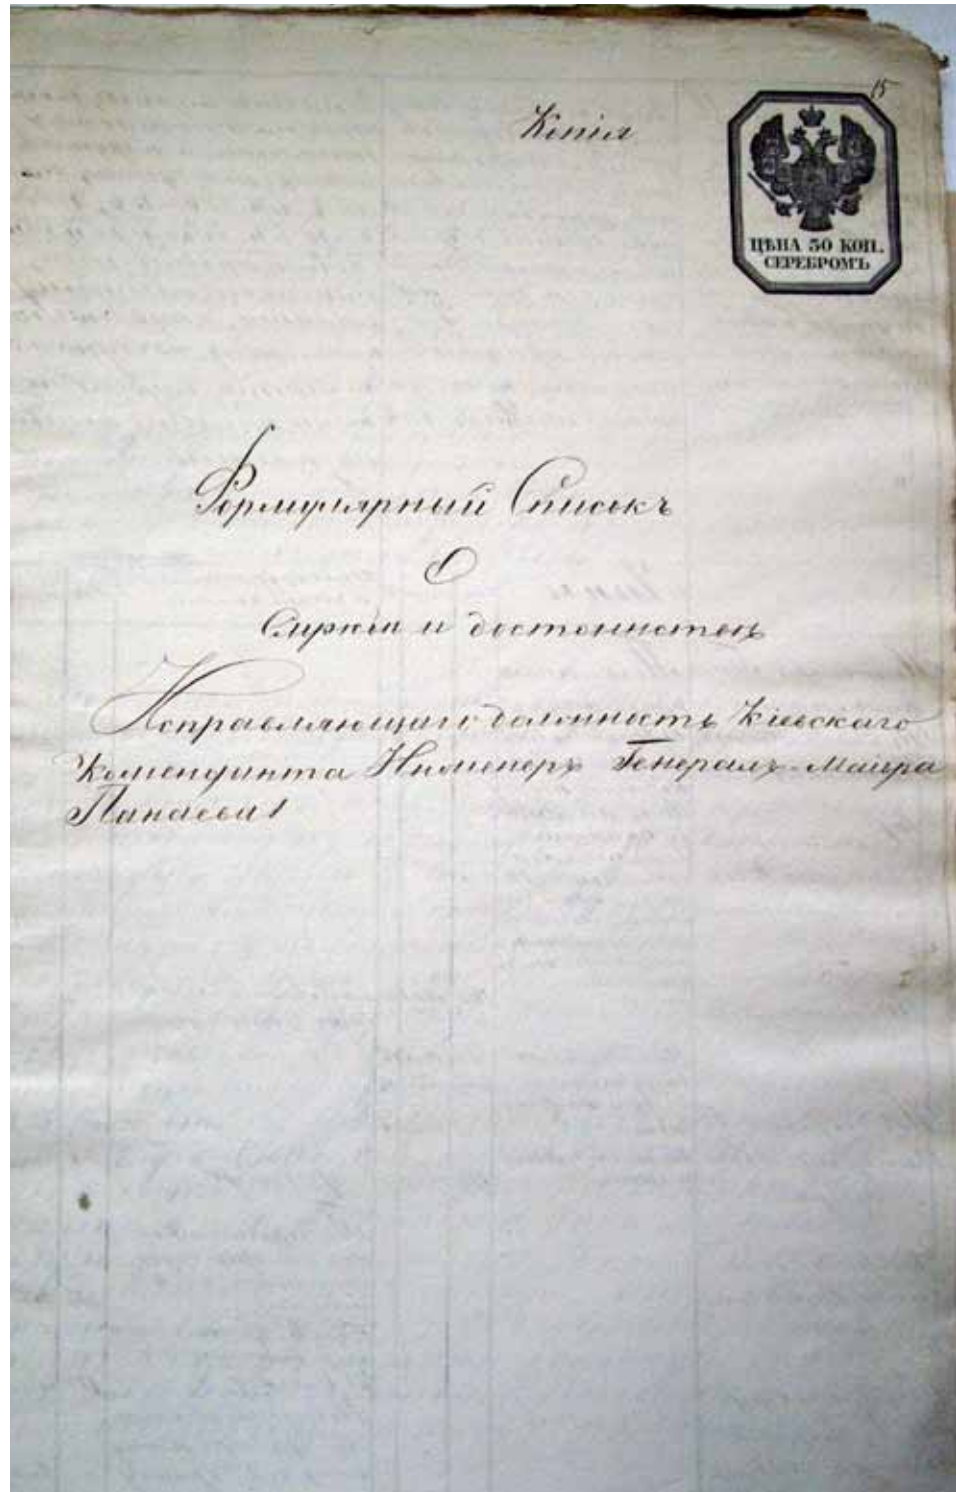 15
Копія
ЦѢНА 50 КОП.
СЕРЕБРОМЪ
Формулярный Списокъ
О
Службѣ и достоинствѣ
Исправляющаго должность Кіевскаго
Коменданта Инженеръ Генералъ-Маіора
Панаева